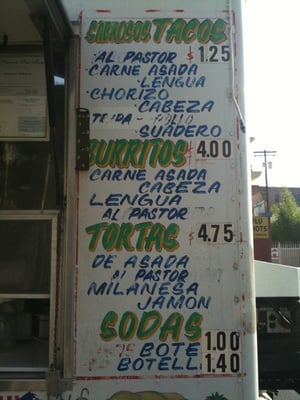 SABROSOS TACOS
AL PASTOR $1.25
CARNE ASADA
LENGUA
CHORIZO
CABEZA
SUADERO
BURRITOS 4.00
CARNE ASADA
CABEZA
LENGUA
AL PASTOR
TORTAS $4.75
DE ASADA
al PASTOR
MILANESA
JAMON
SODAS
BOTE 1.00
BOTELL 1.40